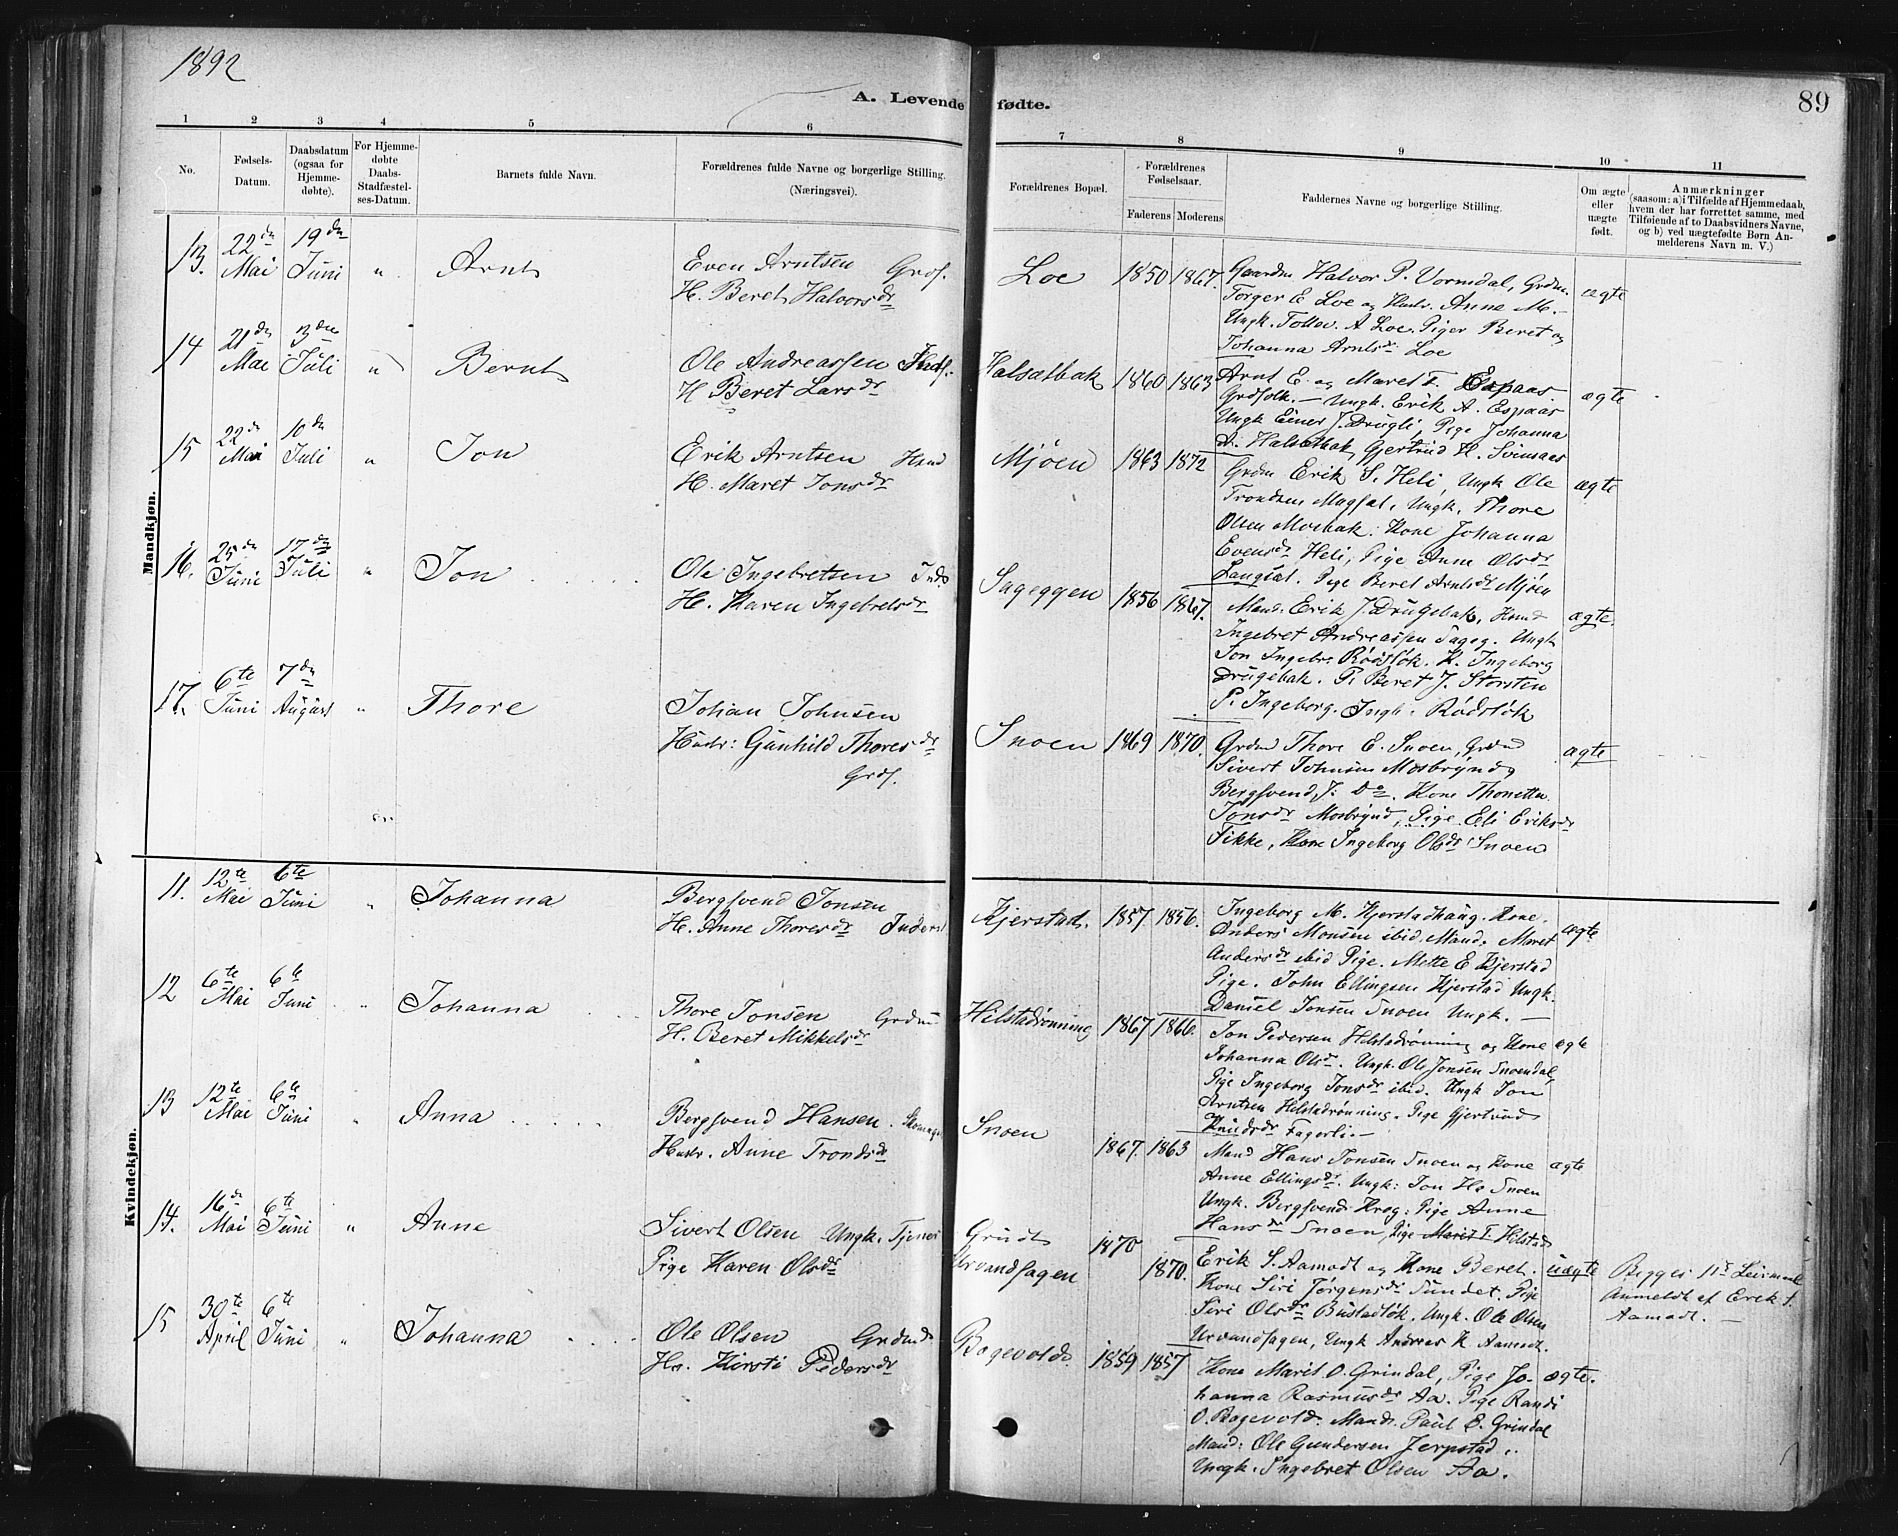 1892
A. Levende fødte.
89
1 2 3 4 5 6 7 8 9 10 11
No.
Fødsels-Datum.
Daabsdatum (ogsaa for Hjemmedøbte).
For Hjemmedøbte Daabs-Stadfæstelses-Datum.
Barnets fulde Navn.
Forældrenes fulde Navne og borgerlige Stilling. (Næringsvei).
Forældrenes Bopæl.
Forældrenes Fødselsaar.
Faderens Moderens
Faddernes Navne og borgerlige Stilling.
Om ægte eller uægte født.
Anmærkninger
(saasom: a) i Tilfælde af Hjemmedaab,
hvem der har forrettet samme, med
Tilføiende af to Daabsvidners Navne,
og b) ved uægtefødte Børn An-
melderens Navn m. V.)
Mandkjøn.
13. 22dn Mai 19dn Juni " Arnt
Even Arntsen Grdf.
H. Beret Halvorsdr
Loe 1850 1867.
Gaardm Halvor P. Vormdal, Grdm.
Torger E Loe og Hustr. Anne M. —
Ungk. Tollev. A Loe. Piger Beret og
Johanna Arntsdr Loe
ægte
14 21dn Mai 3dn Juli " Bernt
Ole Andreassen Indf.
H Beret Larsdr
Halsætbak 1860 1863
Arnt E. og Maret T. Espaas
Grdfolk. — Ungk. Erik A. Espaas
Ungk Einer J. Drugli, Pige Johanna
A. Halsætbak Gjertrud H. Svinsaas
ægte
15 22dn Mai 10dn Juli " Jon
Erik Arntsen
H. Maret Jonsdr
Mjøen 1863 1872
Grdm Erik S. Heli, Ungk Ole
Trondsen Mugsal, Ungk. Thore
Olsen Moebak: Kone Johanna
Evensdr Heli, Pige Anne Olsdr
Langsæt. Pige Beret Arntsdr Mjøen
ægte
16. 25dn Juni 17dn Juli " Jon
Ole Ingebretsen Inds
H. Karen Ingebretsdr
Sageggen 1856 1867.
Mand. Erik J. Drugebak, Hsmd
Ingebret Andreassen Sageg. Ungk
Jon Ingebr. Rødsløk. K. Ingeborg
Drugebak. P. Beret J. Storsten
P. Ingeborg. Ingb. Rødsløk
ægte.
17. 6te Juni 7dn August " Thore
Johan Johnsen
Hustr: Gunhild Thoresdr
Grdf.
Snoen 1869 1870.
Grdmd Thore E. Snoen, Grdmd
Sivert Johnsen Mosbrynd,
Bergsvend J. Do. Kone Thonetta
Jonsdr Mosbrynd, Pige Eli Eriksdr
Fikke, Kone Ingeborg Olsdr Snoen
ægte
Kvindekjøn.
11. 12te Mai 6te Juni " Johanna
Bergsvend Jonsen
H. Anne Thoresdr Inderst
Kjerstad. 1857. 1856.
Ingeborg M. Kjerstadhaug. Kone.
Anders Monsen ibid. Mand. Maret
Andersdr ibid Pige. Mette E Kjerstad
Pige. John Ellingsen Kjerstad Ungk.
Daniel Jonsen Snoen Ungk. —
ægte
12 6te Mai 6te Juni " Johanna
Thore Jonsen Grdm
H. Beret Mikkelsdr
Hilstadrønning 1867 1866.
Jon Pedersen Hilstadrønning og Kone
Johanna Olsdr. Ungk. Ole Jonsen Snoendal,
Pige Ingeborg Jonsdr ibid. Ungk Jon
Arntsen Hilstadrønning. Pige Gjertrud
Knudsdr Fagerli. —
ægte
13 12te Mai 6te Juni " Anna
Bergsvend Hansen.
Hustr. Anne Trondsdr
Snoen 1867. 1863
Mand Hans Jonsen Snoen og Kone
Anne Ellingsdr. Ungk: Jon Hs Snoen
Ungk. Bergsvend Krog: Pige Anne
Hansdr Snoen, Pige Marit T. Hilstad
ægte
14. 16dn Mai 6te Juni " Anne
Sivert Olsen Ungk. Tjener
Pige Karen Olsdr
Grindt
Urvandsagen
1870 1870.
Erik S. Aamodt og Kone Beret.
Kone Siri Jørgensdr Sundet. Pige
Siri Olsdr Bustadløk, Ungk. Ole Olsen
Urvandsagen, Ungk Andreas K. Aamodt.
uægte
Begges 1ste Leiermaal
Anmeldt af Erik S.
Aamodt. —
15 30te April 6te Juni " Johanna
Ole Olsen Grdmd
Hs. Kirsti Pedersdr
Bogevold 1859 1857
Kone Marit O. Grindal, Pige Jo-
hanna Rasmusdr Aa. Pige Randi
O. Bogevold. Mand. Paul E. Grindal
Mand: Ole Gundersen Jerpstad.
Ungk. Ingebret Olsen Aa.
ægte.